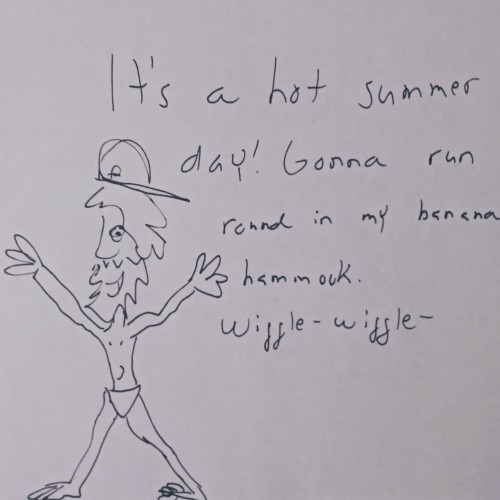 It's a hot summer
day! Gonna run
round in my banana
hammock.
Wiggle-wiggle-